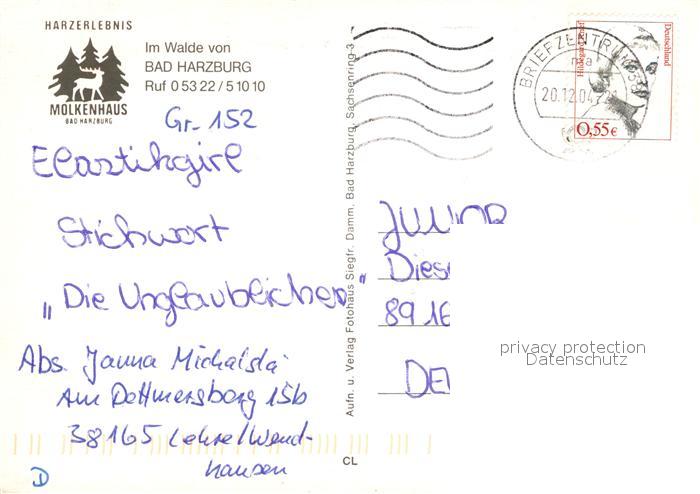 HARZERLEBNIS
MOLKENHAUS
BAD HARZBURG
Im Walde von
BAD HARZBURG
Ruf 0 53 22 / 5 10 10
Gr. 152
Elastikgirl
Stichwort
„Die Unglaublichen"
Abs. Janna Michalski
Am Dettmersberg 15b
38165 Lehre/Wend-
hausen
D
Aufn. u. Verlag Fotohaus Siegfr. Damm, Bad Harzburg, Sachsenring 3
CL
BRIEFZENTRUM 38
20.12.04
Deutschland
0,55€
Dies
8916
DE
privacy protection
Datenschutz